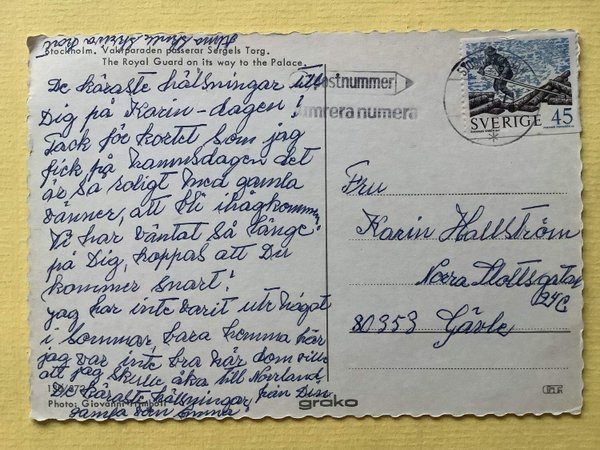 Stockholm. Vaktparaden passerar Sergels Torg.
The Royal Guard on its way to the Palace.
De käraste hälsningar till
Dig på Karin-dagen!
Tack för kortet som jag
fick på namnsdagen det
är så roligt med gamla
vänner, att bli ihågkommen
Vi har väntat så länge
på Dig, hoppas att Du
kommer snart!
jag har inte varit ute något
i sommar bara hemma här
jag var inte bra när dom ville
att jag skulle åka till Norrland,
De käraste hälsningar från Din
gamla vän
Photo: Giovanni Trimboli
grako
postnummer
numrera numera
SVERIGE 45
Fru
Karin Hallström
Norra
24C
80353 Gävle